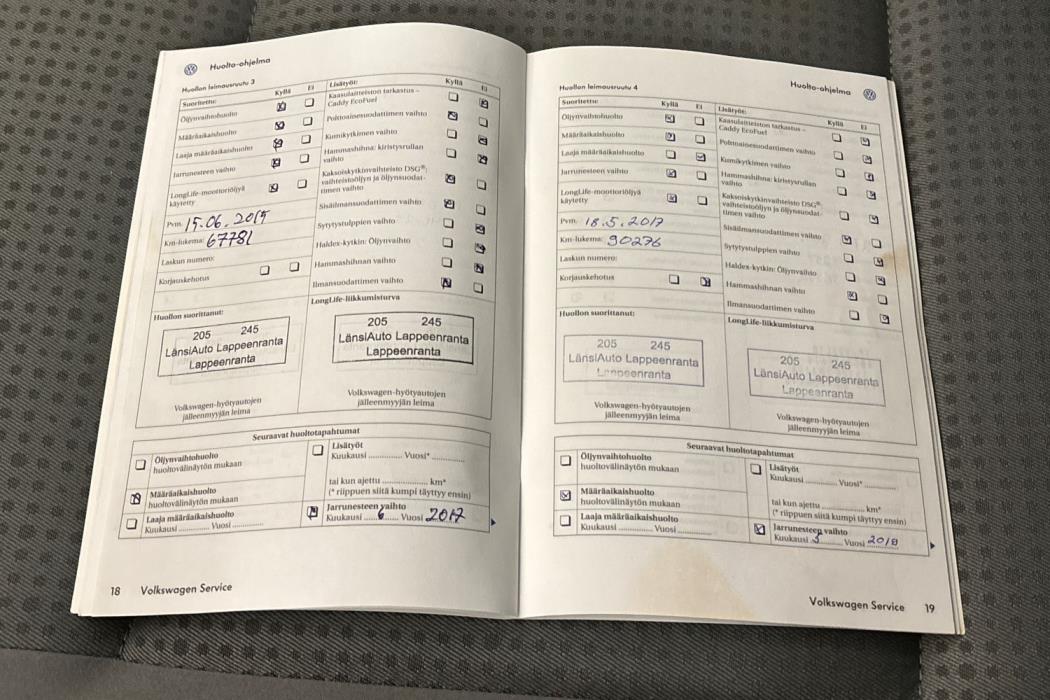 Huolto-ohjelma
Huollon leimausruutu 3
Suoritettu:
Kyllä
Ei
Öljynvaihtohuolto
Määräaikaishuolto
Laaja määräaikaishuolto
Jarrunesteen vaihto
LongLife-moottoriöljyä
käytetty
Pvm.
Km-lukema: 67781
Laskun numero:
Korjauskehotus
Lisätyöt:
Kyllä
Ei
Kaasulaitteiston tarkastus –
Caddy EcoFuel
Polttoainesuodattimen vaihto
Kumikytkimen vaihto
Hammashihna: kiristysrullan
vaihto
Kaksoiskytkinvaihteisto DSG®:
vaihteistoöljyn ja öljynsuodat-
timen vaihto
Sisäilmansuodattimen vaihto
Sytytystulppien vaihto
Haldex-kytkin: Öljynvaihto
Hammashihnan vaihto
Ilmansuodattimen vaihto
Huollon suorittanut:
205 245
LänsiAuto Lappeenranta
Lappeenranta
Volkswagen-hyötyautojen
jälleenmyyjän leima
LongLife-liikkumisturva
205 245
LänsiAuto Lappeenranta
Lappeenranta
Volkswagen-hyötyautojen
jälleenmyyjän leima
Seuraavat huoltotapahtumat
Öljynvaihtohuolto
huoltovälinäytön mukaan
Määräaikaishuolto
huoltovälinäytön mukaan
Laaja määräaikaishuolto
Kuukausi ............ Vuosi ............
Lisätyöt
Kuukausi ............ Vuosi* ............
tai kun ajettu ............ km*
(* riippuen siitä kumpi täyttyy ensin)
Jarrunesteen vaihto
Kuukausi 6 Vuosi 2017
18 Volkswagen Service
Huolto-ohjelma
Huollon leimausruutu 4
Suoritettu:
Kyllä
Ei
Öljynvaihtohuolto
Määräaikaishuolto
Laaja määräaikaishuolto
Jarrunesteen vaihto
LongLife-moottoriöljyä
käytetty
Pvm. 18.5.2017
Km-lukema: 90276
Laskun numero:
Korjauskehotus
Lisätyöt:
Kyllä
Ei
Kaasulaitteiston tarkastus –
Caddy EcoFuel
Polttoainesuodattimen vaihto
Kumikytkimen vaihto
Hammashihna: kiristysrullan
vaihto
Kaksoiskytkinvaihteisto DSG®:
vaihteistoöljyn ja öljynsuodat-
timen vaihto
Sisäilmansuodattimen vaihto
Sytytystulppien vaihto
Haldex-kytkin: Öljynvaihto
Hammashihnan vaihto
Ilmansuodattimen vaihto
Huollon suorittanut:
205 245
LänsiAuto Lappeenranta
Lappeenranta
Volkswagen-hyötyautojen
jälleenmyyjän leima
LongLife-liikkumisturva
205 245
LänsiAuto Lappeenranta
Lappeenranta
Volkswagen-hyötyautojen
jälleenmyyjän leima
Seuraavat huoltotapahtumat
Öljynvaihtohuolto
huoltovälinäytön mukaan
Määräaikaishuolto
huoltovälinäytön mukaan
Laaja määräaikaishuolto
Kuukausi ............ Vuosi ............
Lisätyöt
Kuukausi ............ Vuosi* ............
tai kun ajettu ............ km*
(* riippuen siitä kumpi täyttyy ensin)
Jarrunesteen vaihto
Kuukausi 5 Vuosi 2018
Volkswagen Service 19